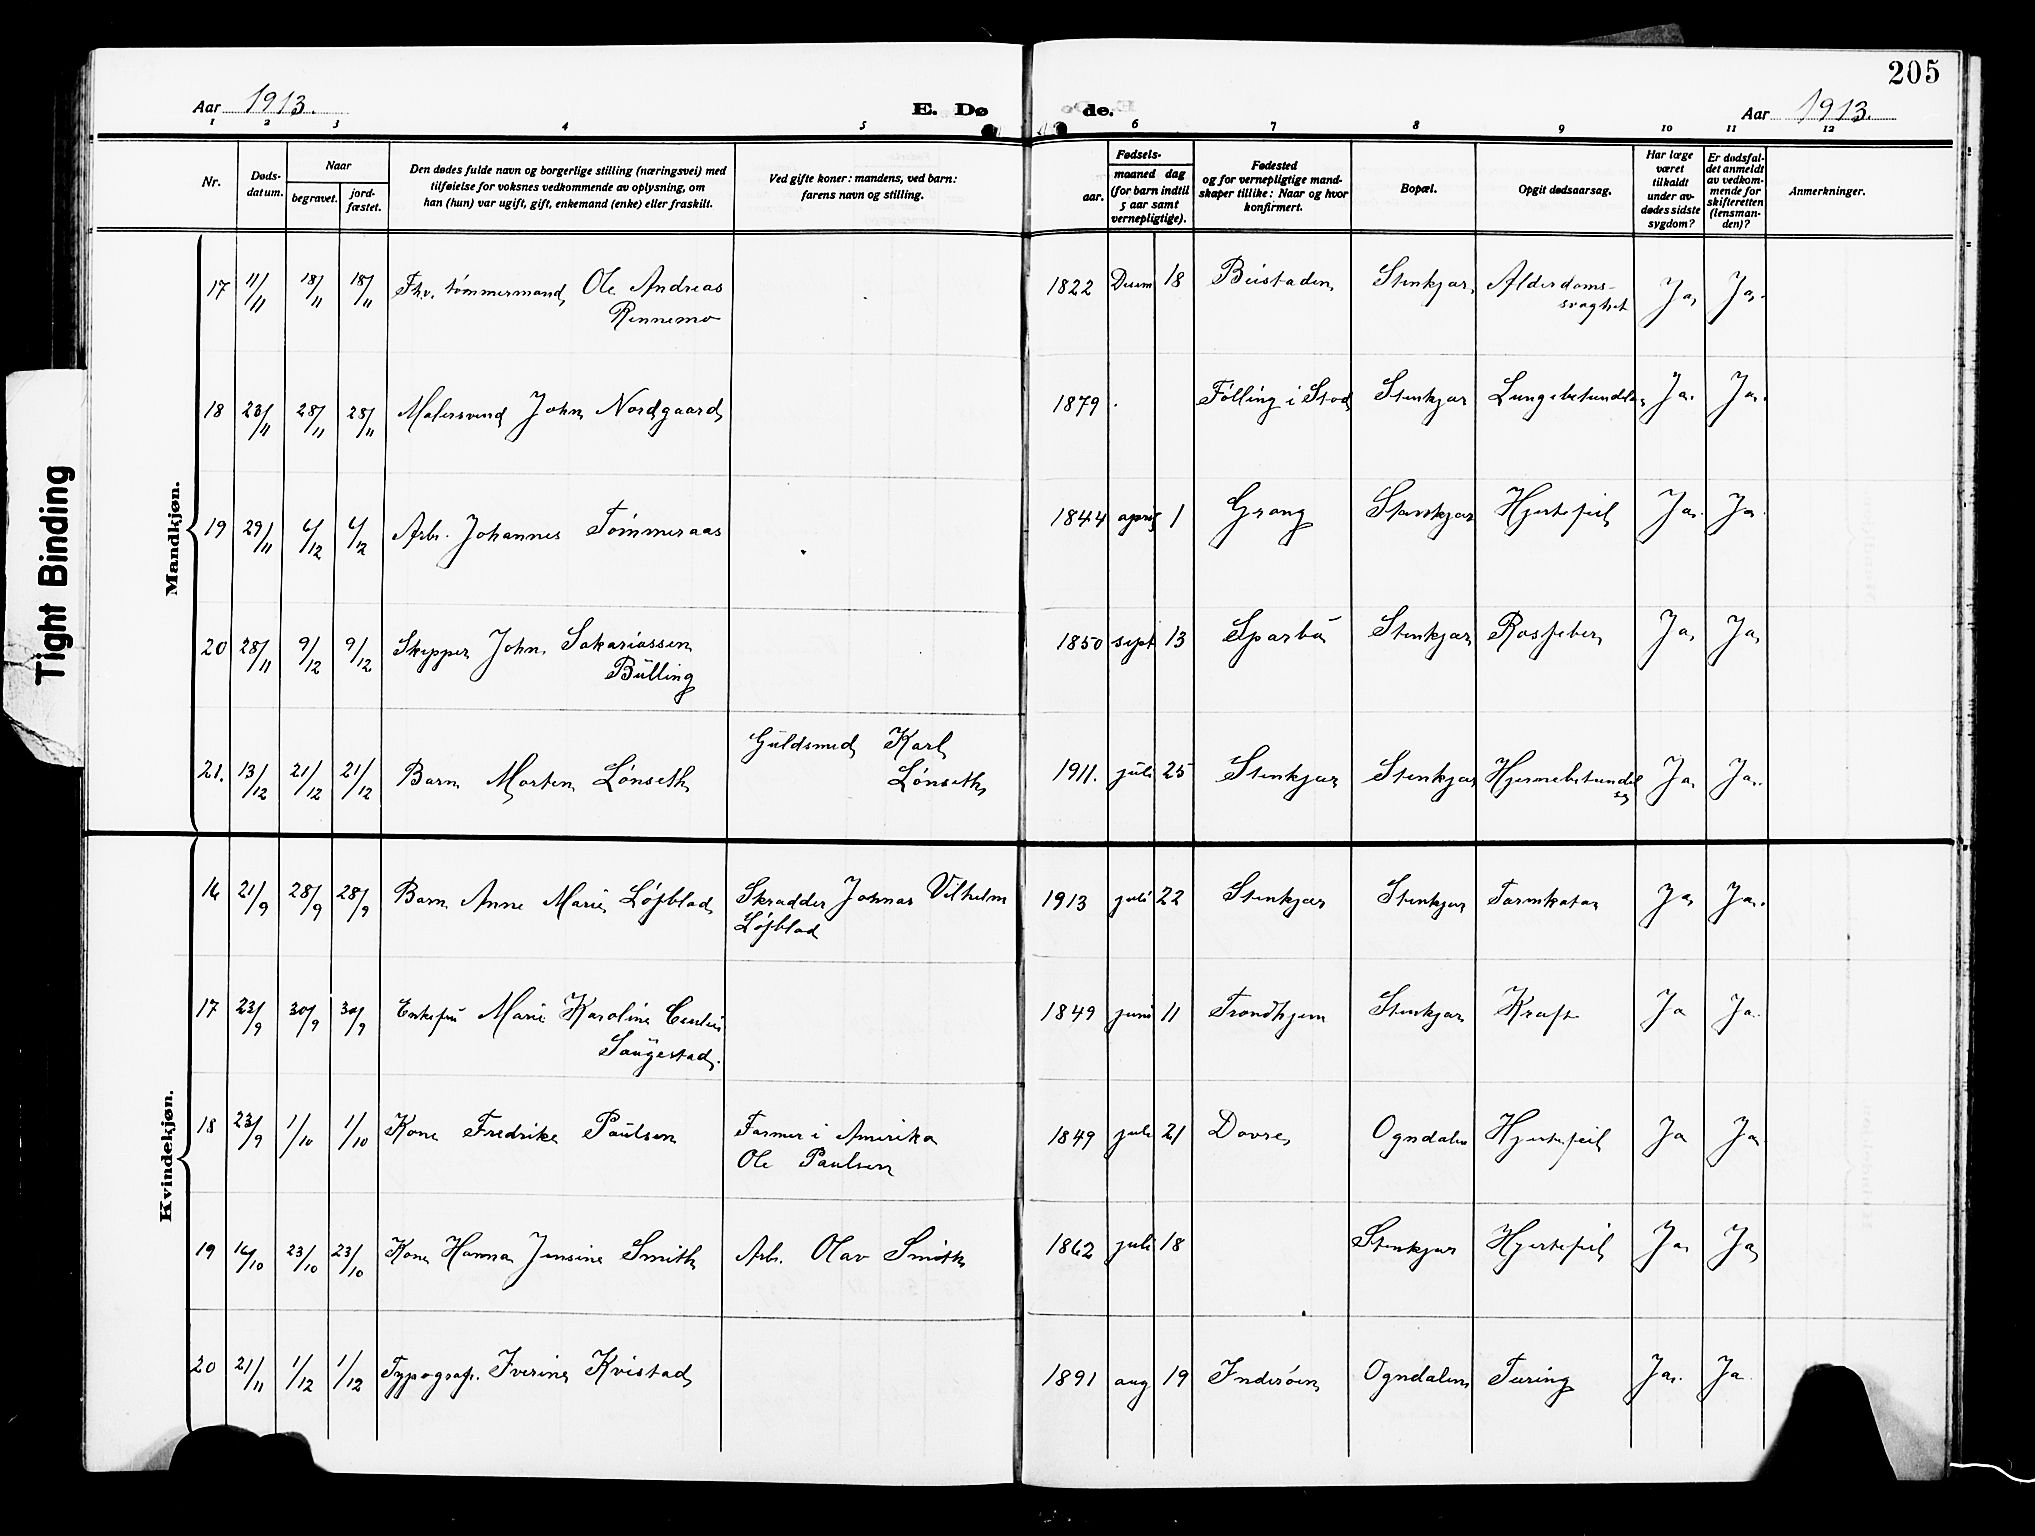 205
Aar 1913. E. Dø de. Aar 1913.
1 2 3 4 5 6 7 8 9 10 11 12
Nr.
Døds-
datum.
Naar
begravet.
jord-
fæstet.
Den dødes fulde navn og borgerlige stilling (næringsvei) med
tilføielse for voksnes vedkommende av oplysning, om
han (hun) var ugift, gift, enkemand (enke) eller fraskilt.
Ved gifte koner: mandens, ved barn:
farens navn og stilling.
Fødsels-
aar.
maaned dag
(for barn indtil
5 aar samt
vernepligtige).
Fødested
og for vernepligtige mand-
skaper tillike: Naar og hvor
konfirmert.
Bopæl.
Opgit dødsaarsag.
Har læge
været
tilkaldt
under av-
dødes sidste
sygdom?
Er dødsfal-
det anmeldt
av vedkom-
mende for
skifteretten
(lensman-
den)?
Anmerkninger.
Tight Binding
Mandkjøn.
17 11/11 18/11 18/11 Fhv. tømmermand Ole Andreas 1822 18 Beistaden Stenkjær Alderdoms- Ja Ja.
Rennemo svaghet
18 23/11 28/11 28/11 Malersvend John Nordgaard 1879 Følling i Stod Stenkjær Ja. Ja.
19 29/11 6/12 6/12 Arb. Johannes Tømmeraas 1844 april 1 Grong Stenkjær Hjertefeil Ja. Ja
20 28/11 9/12 9/12 Skipper John Sakariassen 1850 sept 13 Sparbu Stenkjær Rosfeber Ja Ja
Bülling
Guldsmed Karl
21. 13/12 21/12 21/12 Barn Morten Lønseth Lønseth 1911. juli 25 Stenkjær Stenkjær Ja Ja.
Kvindekjøn.
16 21/9 28/9 28/9 Barn Anne Marie Löfblad Skrædder Johnar Vilhelm 1913 juli 22 Stenkjær Stenkjær Tarmkatar Ja Ja.
Löfblad
17 23/9 30/9 30/9 Enkefru Marie Karoline 1849 juni 11 Trondhjem Stenkjær Kræft Ja Ja.
Saugestad.
18 23/9 1/10 1/10 Kone Fredrike Paulsen Farmer i Amerika 1849 juli 21 Dovre Ogndalen Hjertefeil Ja Ja
Ole Paulsen
19 16/10 23/10 23/10 Kone Hanna Jensine Smith Arb. Olav Smith 1862 juli 18 Stenkjær Hjertefeil Ja. Ja
20 21/11 1/12 1/12 Typograf. Iverine Kvistad 1891 aug 19 Inderøen Ogndalen Tæring Ja. Ja